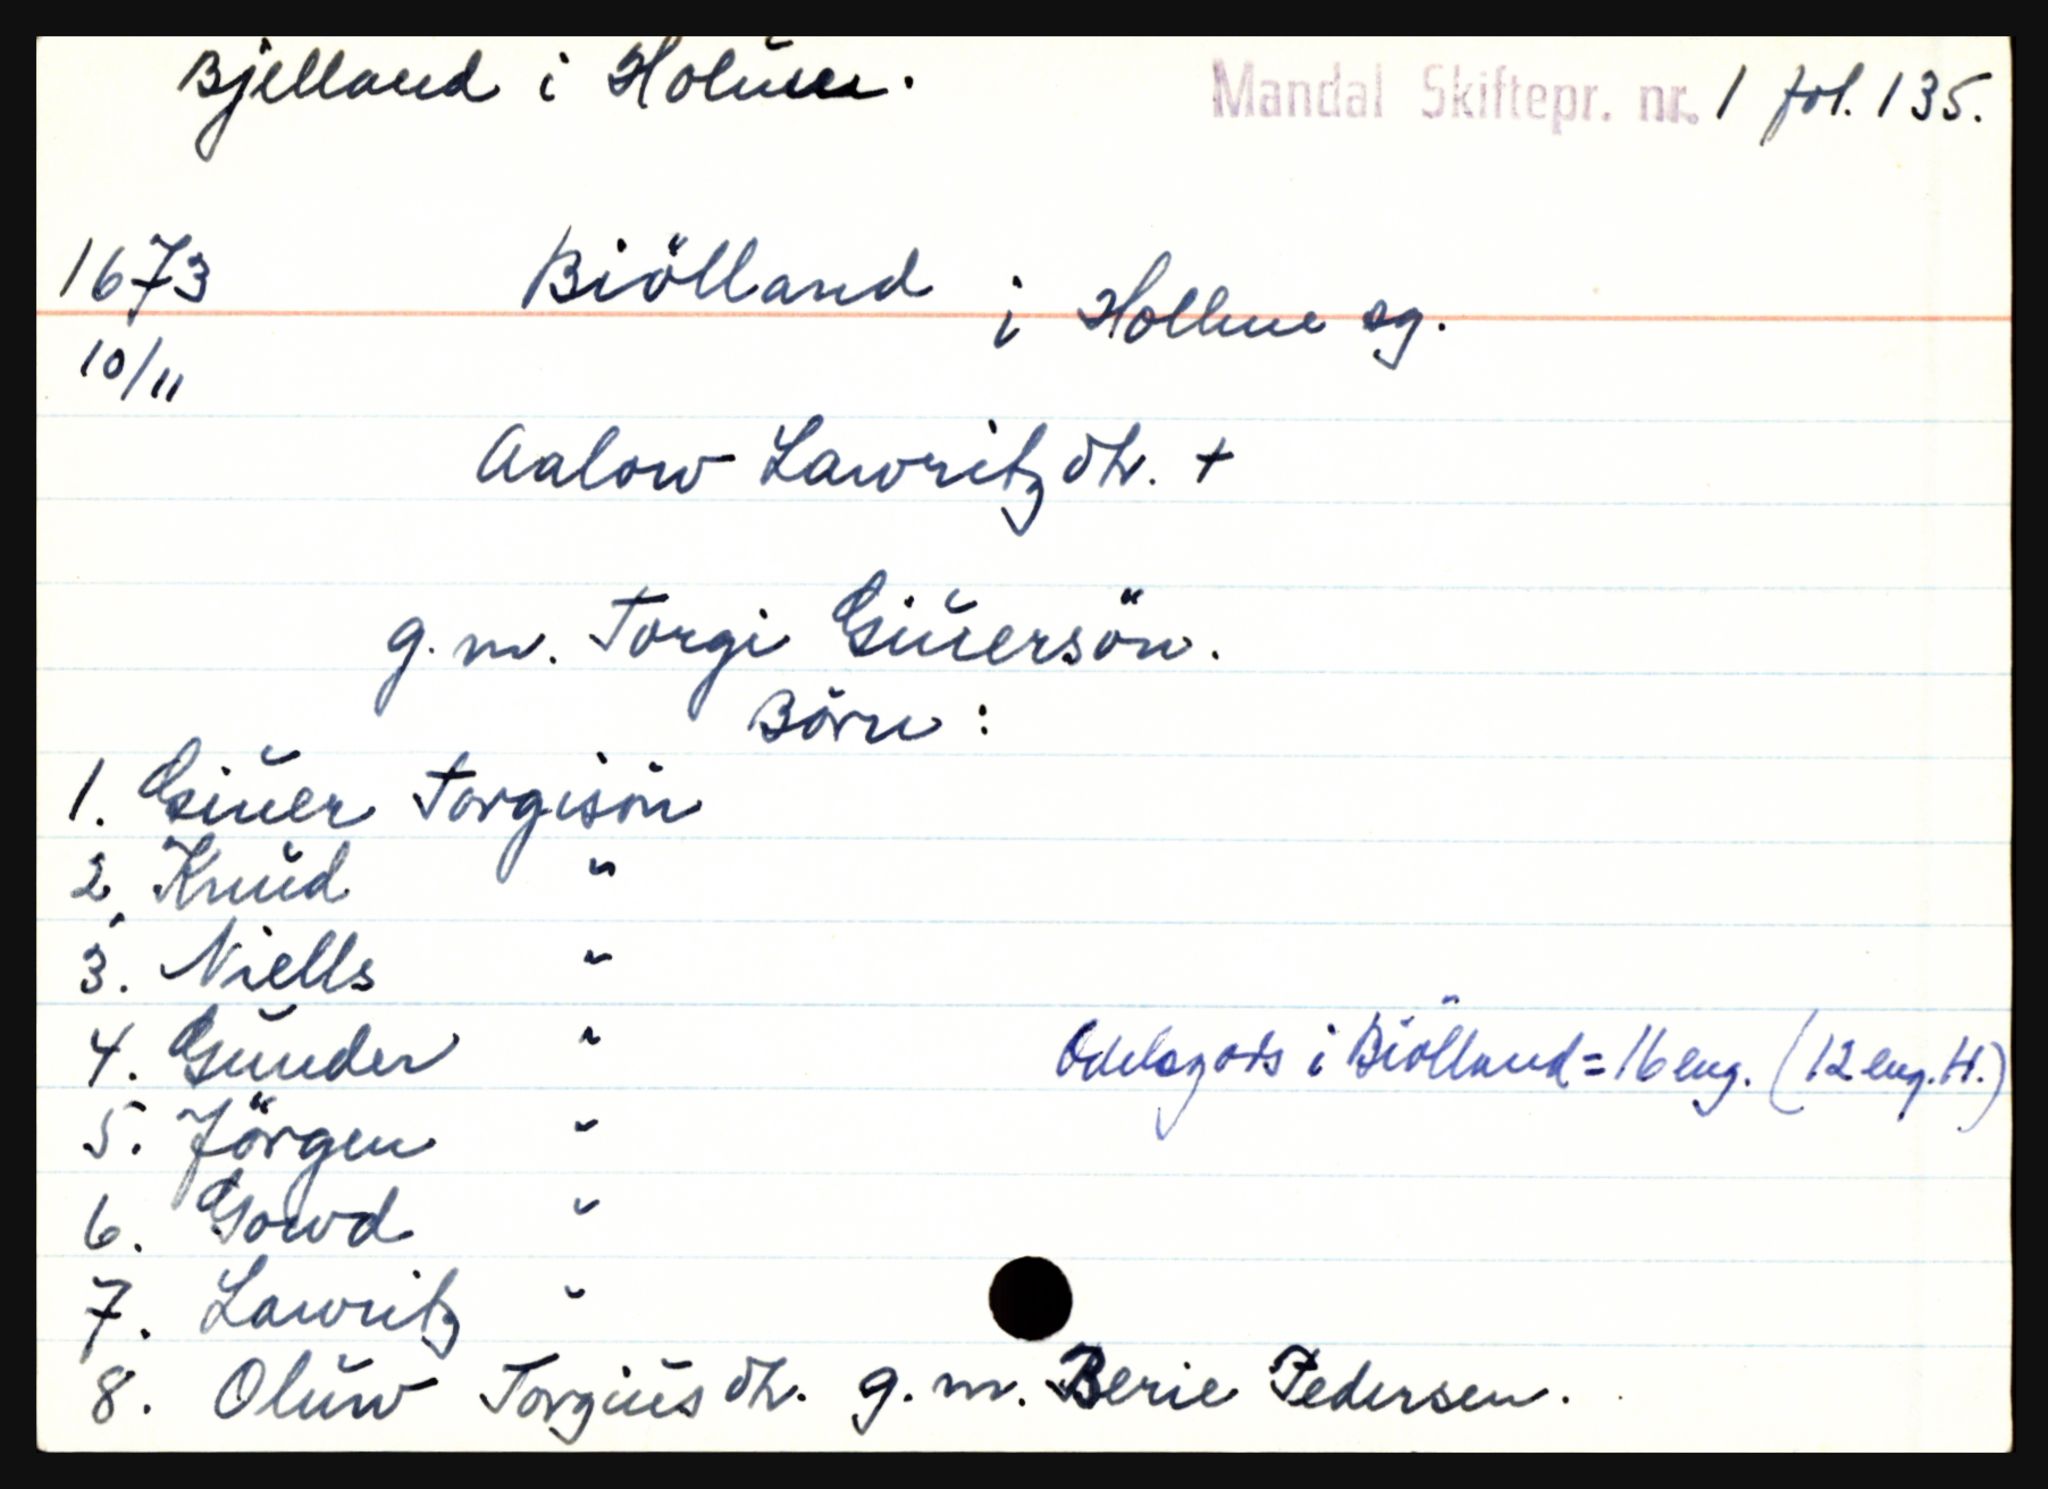 Bjelland i Holum. Mandal Skiftepr. nr. 1 fol. 135.
1673 Biölland i Hollme sg.
10/11
Aalow Lawritzdtr. +
g. m. Torgi Giŭersön.
Börn :
1. Giŭer Torgisön
2. Knŭd "
3. Niells "
4. Gŭnder "
5. Jörgen "
6. Gowd "
7. Lawritz "
8. Olŭw Torgiŭsdtr. g. m. Berie Pedersen.
Odelsgods i Biölland = 16 eng. (12 eng. H.)